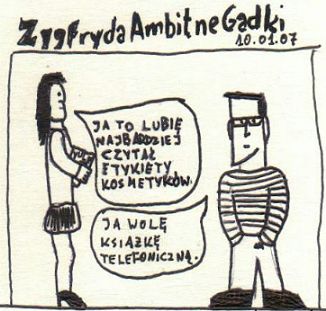 Zygfryda Ambitne Gadki
10.01.07
JA TO LUBIĘ
NAJBARDZIEJ
CZYTAĆ
ETYKIETY
KOSMETYKÓW.
JA WOLĘ
KSIĄŻKĘ
TELEFONICZNĄ.